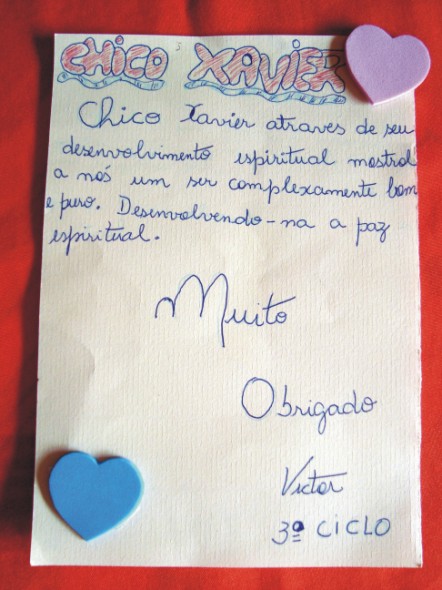 CHICO XAVIER
Chico Xavier atraves de seu
desenvolvimento espiritual mostrol
a nós um ser complexamente bom
e puro. Desenvolvendo-na a paz
espiritual.
Muito
Obrigado
Victor
3º CICLO